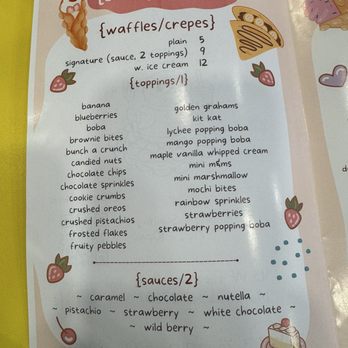 {waffles/crepes}
plain 5
signature (sauce, 2 toppings) 9
w. ice cream 12
{toppings/1}
banana
blueberries
boba
brownie bites
bunch a crunch
candied nuts
chocolate chips
chocolate sprinkles
cookie crumbs
crushed oreos
crushed pistachios
frosted flakes
fruity pebbles
golden grahams
kit kat
lychee popping boba
mango popping boba
maple vanilla whipped cream
mini m&ms
mini marshmallow
mochi bites
rainbow sprinkles
strawberries
strawberry popping boba
{sauces/2}
~ caramel ~ chocolate ~ nutella ~
~ pistachio ~ strawberry ~ white chocolate ~
~ wild berry ~